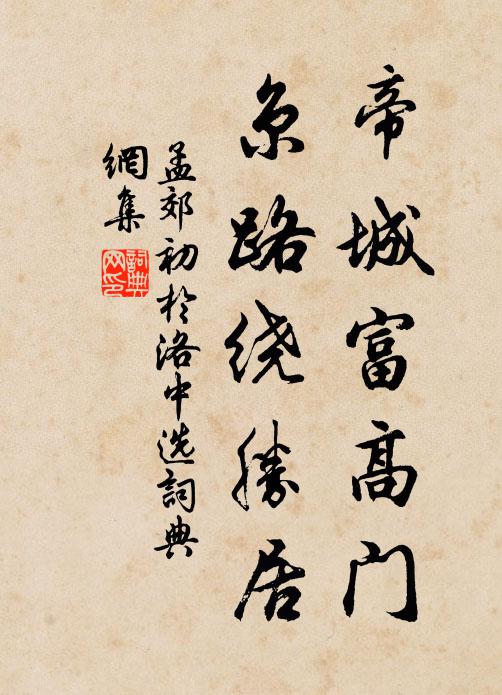 帝城富高门
京路绕勝居
孟郊初於洛中选詞典
網集
詞典网印